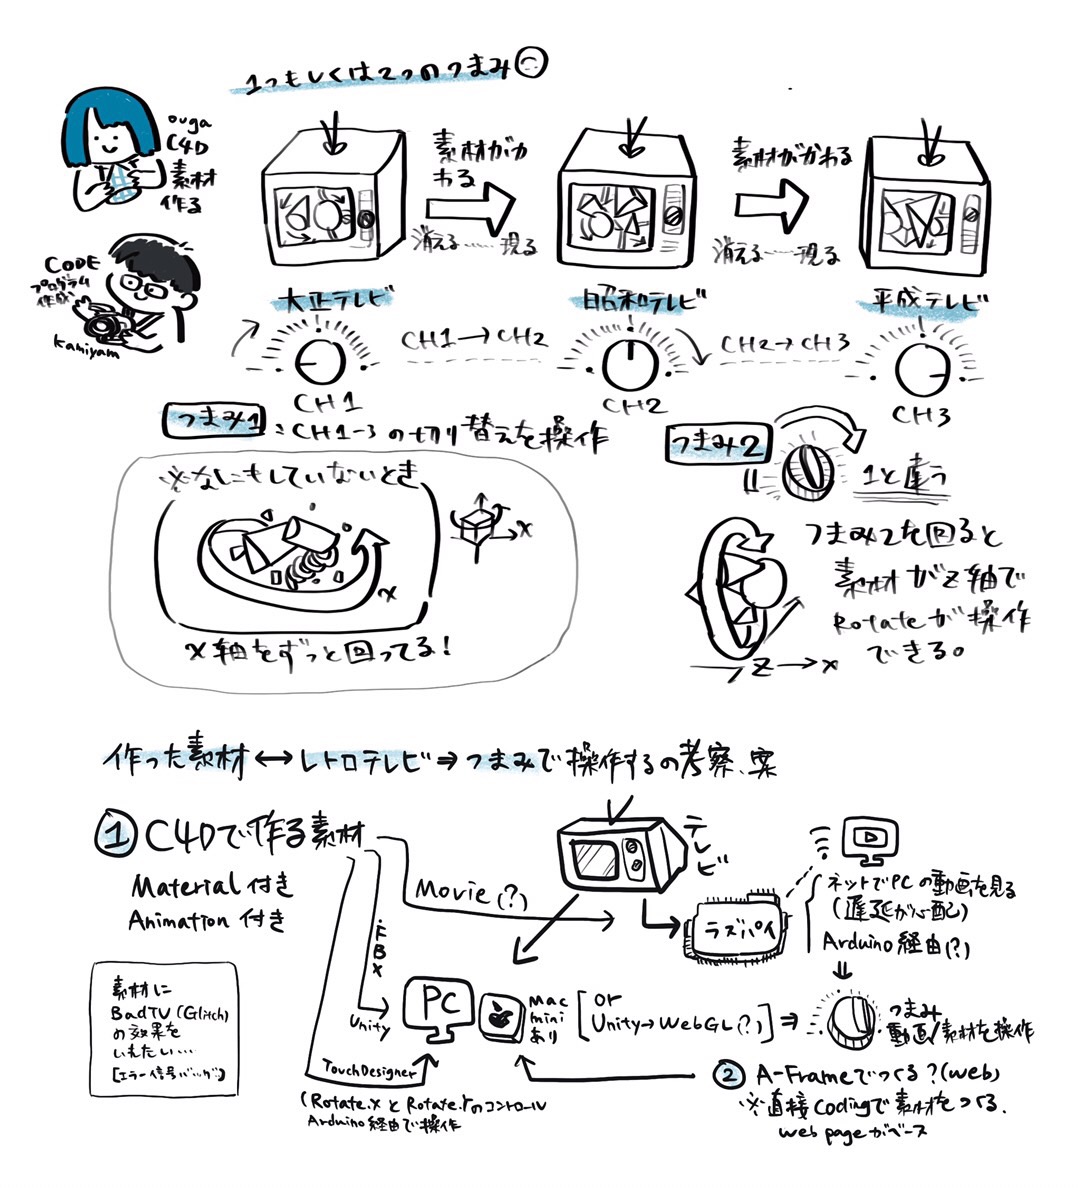 1つもしくは2つのつまみ
ouga
C4D
素材
作る
CODE
プログラム
作成
kamiyam
素材がか
わる
消える……現る
素材がかわる
消える……現る
大正テレビ
昭和テレビ
平成テレビ
CH1→CH2
CH2→CH3
CH1
CH2
CH3
つまみ1:CH1-3の切り替えを操作
つまみ2
1と違う
※なにもしていないとき
x
x
x軸をずっと回ってる!
つまみ2を回ると
素材がz軸で
Rotateが操作
できる。
Z→x
作った素材↔レトロテレビ⇒つまみで操作するの考察、案
① C4Dで作る素材
Material付き
Animation付き
Movie(?)
テレビ
ラズパイ
ネットでPCの動画を見る
(遅延が心配)
Arduino経由(?)
.FBX
素材に
BadTV(Glitch)
の効果を
いれたい…
[エラー信号バッグ]
Unity
PC
mac
mini
あり
or
Unity→WebGL(?)
⇒
つまみ
動画/素材を操作
TouchDesigner
(Rotate.xとRotate.Yのコントロール
Arduino経由で操作
② A-Frameでつくる?(web)
※直接Codingで素材をつくる.
web pageがベース